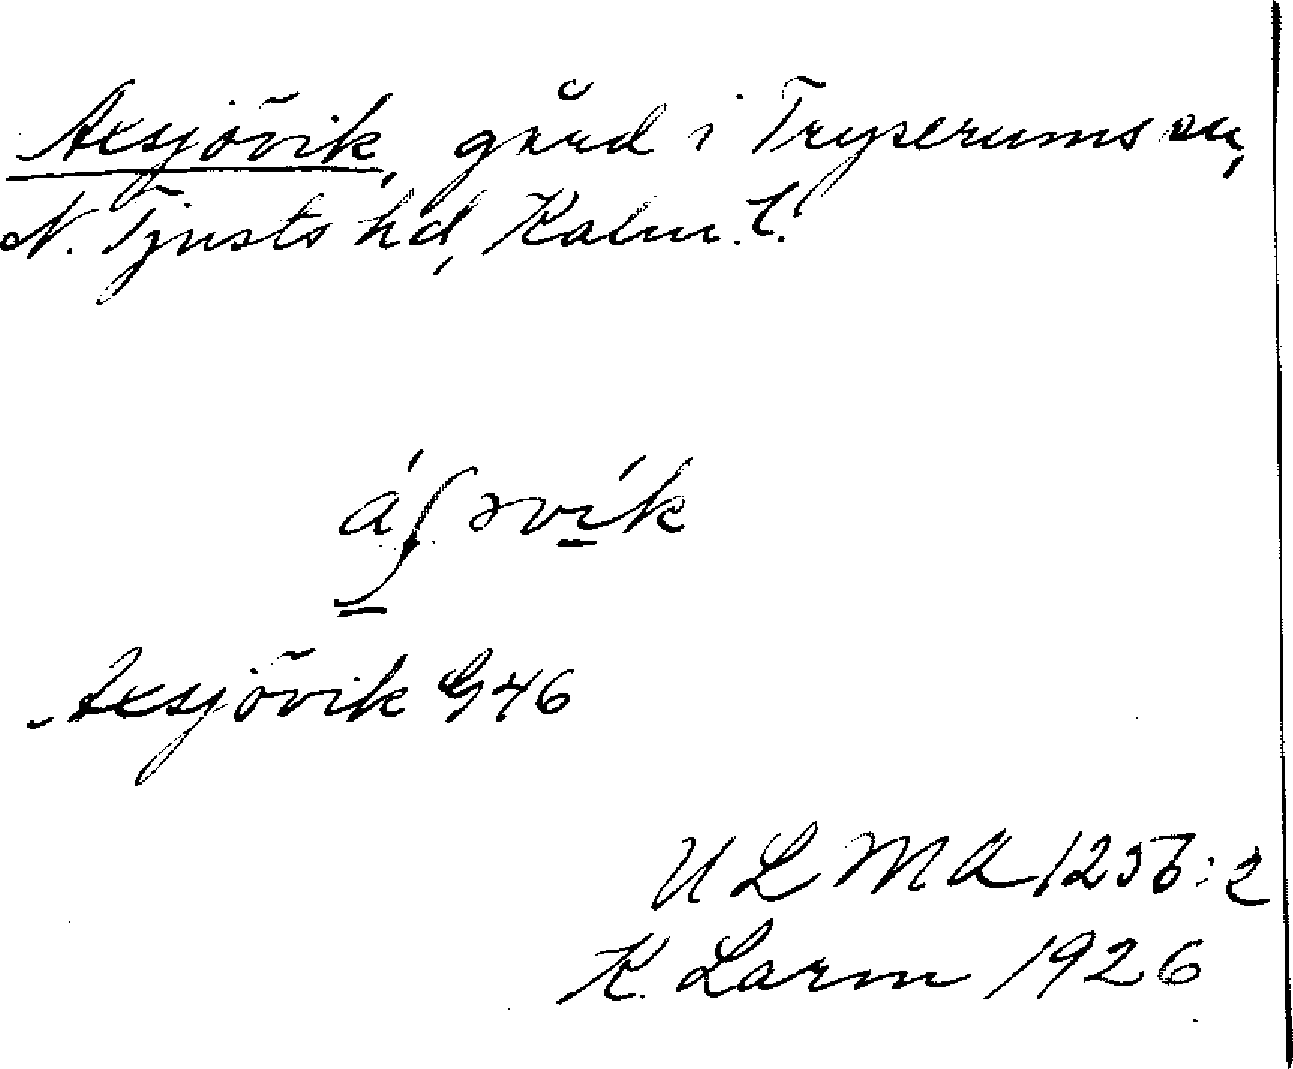 Axsjövik, gård i Tryserums sn,
N. Tjusts hd, Kalm. l.
Axsjövik G 46
ULMA 1256:2
K. Larm 1926